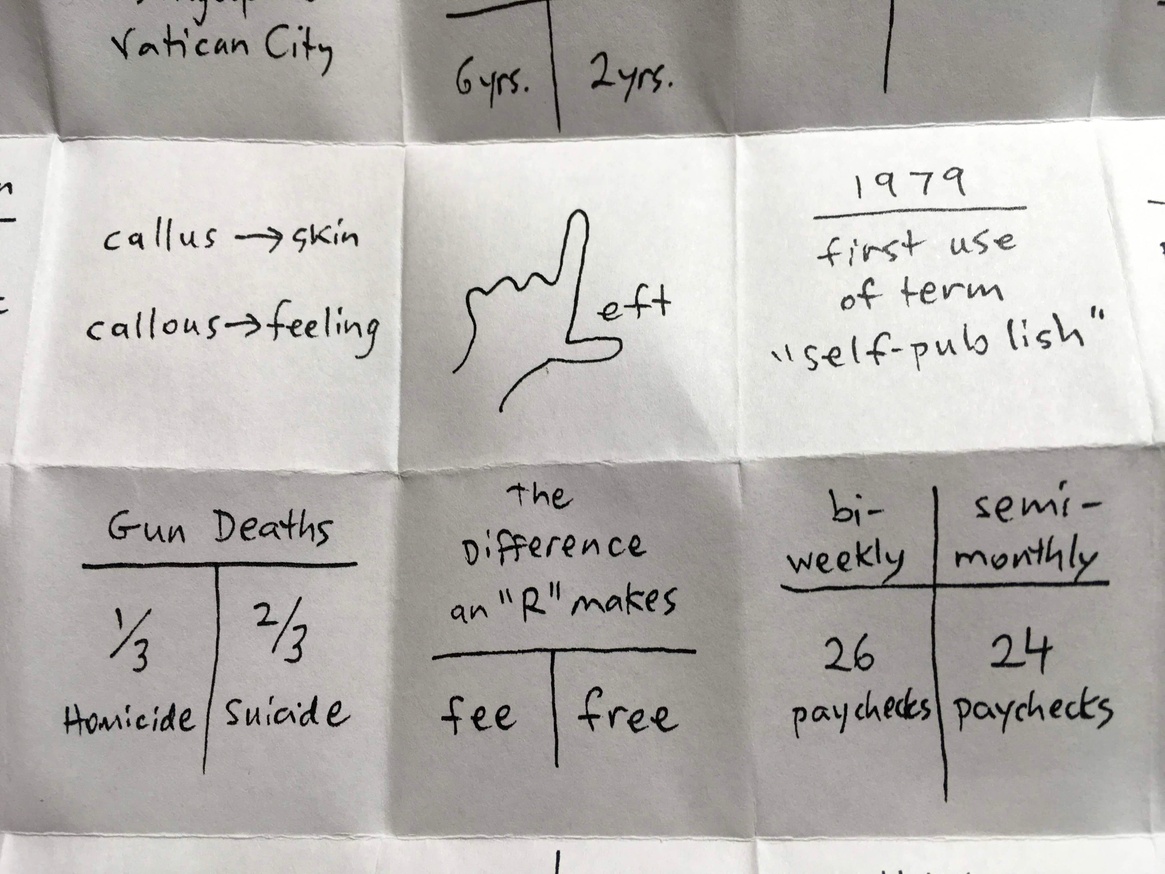 Vatican City
6 yrs. 2 yrs.
callus → skin
callous → feeling
eft
1979
first use
of term
"self-publish"
Gun Deaths
1/3 2/3
Homicide Suicide
the
Difference
an "R" makes
fee free
bi-
weekly
semi-
monthly
26
paychecks
24
paychecks